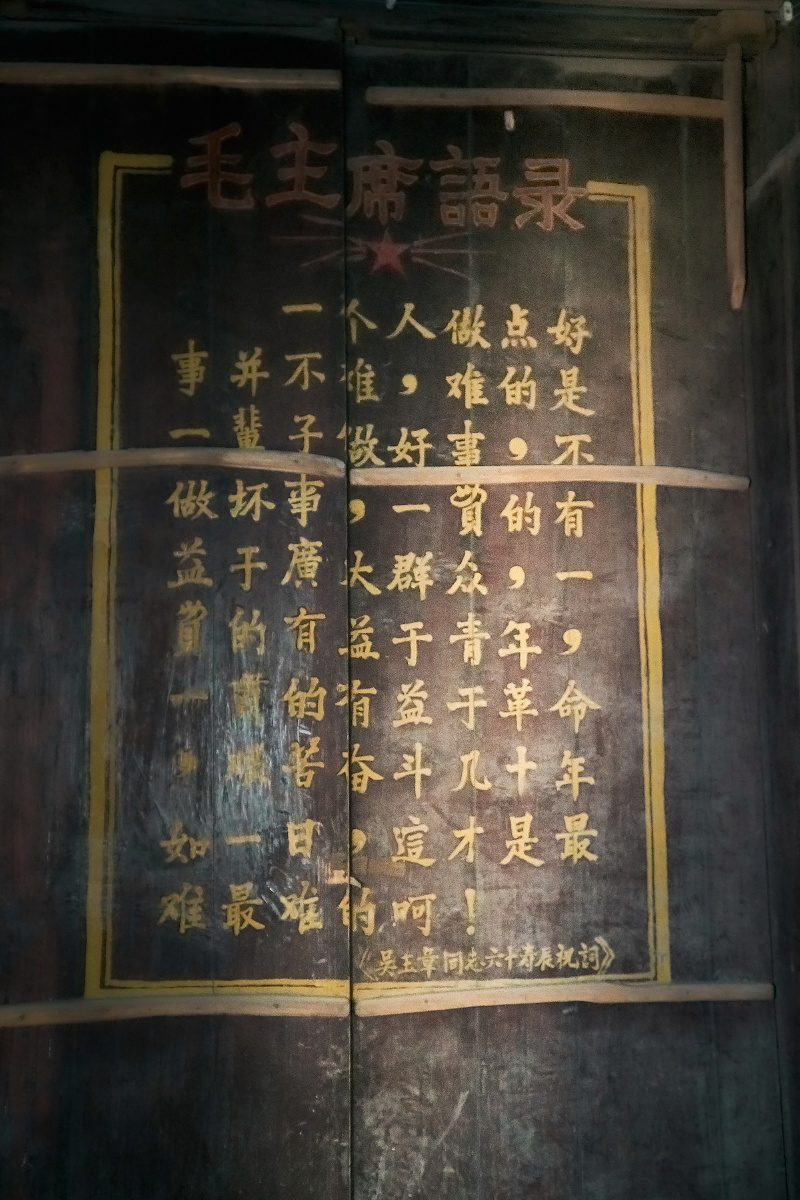 毛主席語录
一个人做点好
事并不难，难的是
一輩子做好事，不
做坏事，一貫的有
益于廣大群众，一
貫的有益于青年，
一貫的有益于革命
，艱苦奋斗几十年
如一日，這才是最
难最难的呵！
《吳玉章同志六十寿辰祝詞》